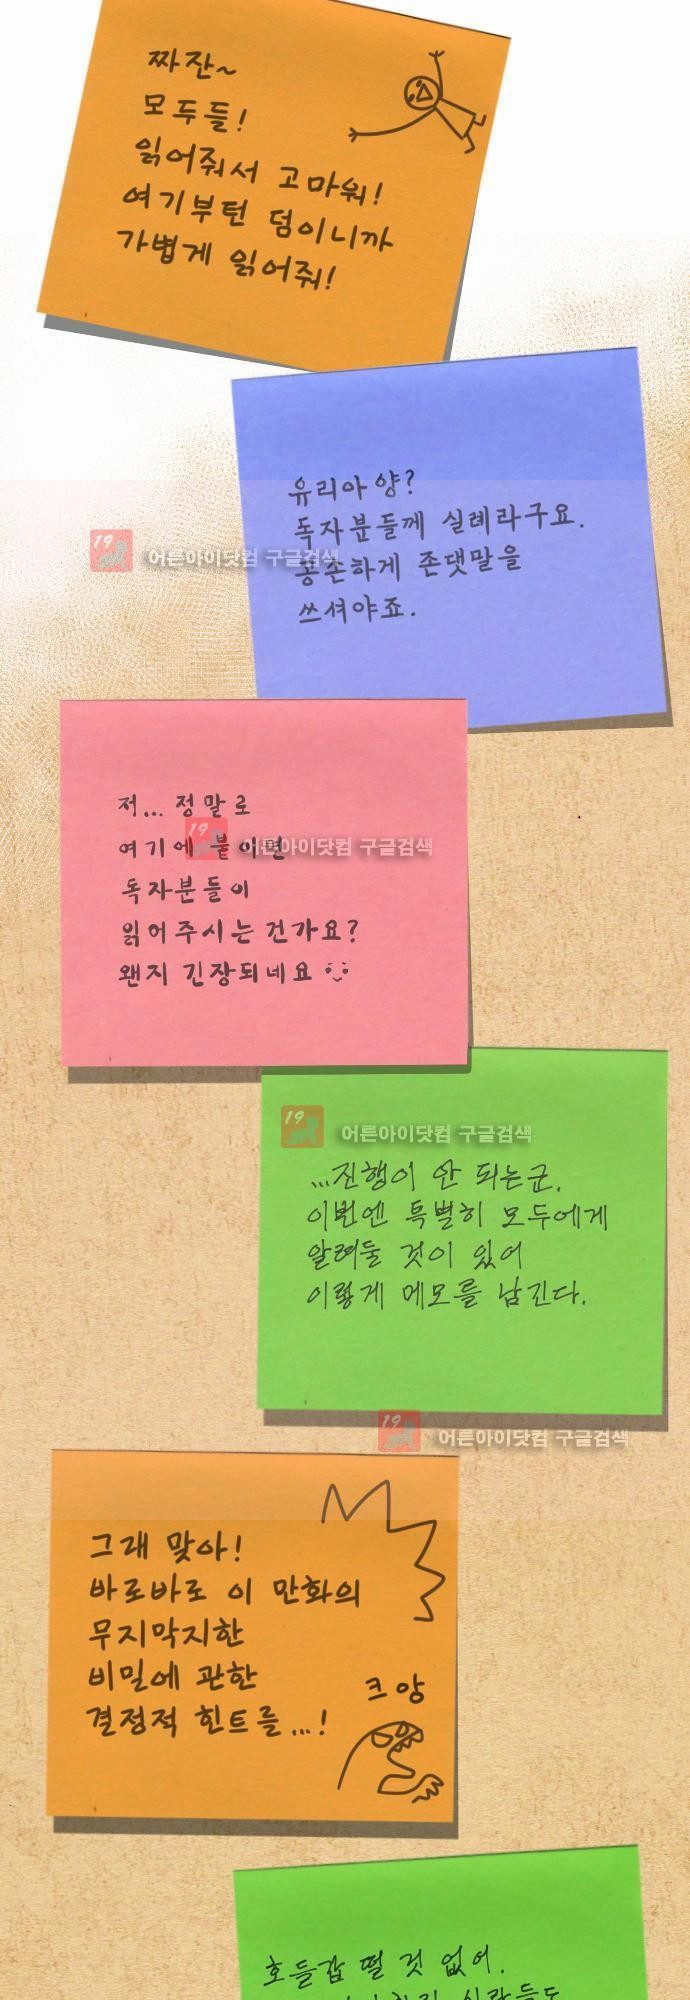 짜잔~
모두들!
읽어줘서 고마워!
여기부턴 덤이니까
가볍게 읽어줘!
유리아 양?
독자분들께 실례라구요.
19 어른아이닷컴 구글검색
공손하게 존댓말을
쓰셔야죠.
저... 정말로
여기에 붙이면
19 어른아이닷컴 구글검색
독자분들이
읽어주시는 건가요?
왠지 긴장되네요
19 어른아이닷컴 구글검색
...진행이 안 되는군.
이번엔 특별히 모두에게
알려둘 것이 있어
이렇게 메모를 남긴다.
19 어른아이닷컴 구글검색
그래 맞아!
바로바로 이 만화의
무지막지한
비밀에 관한
결정적 힌트를...!
크앙
호들갑 떨 것 없어.